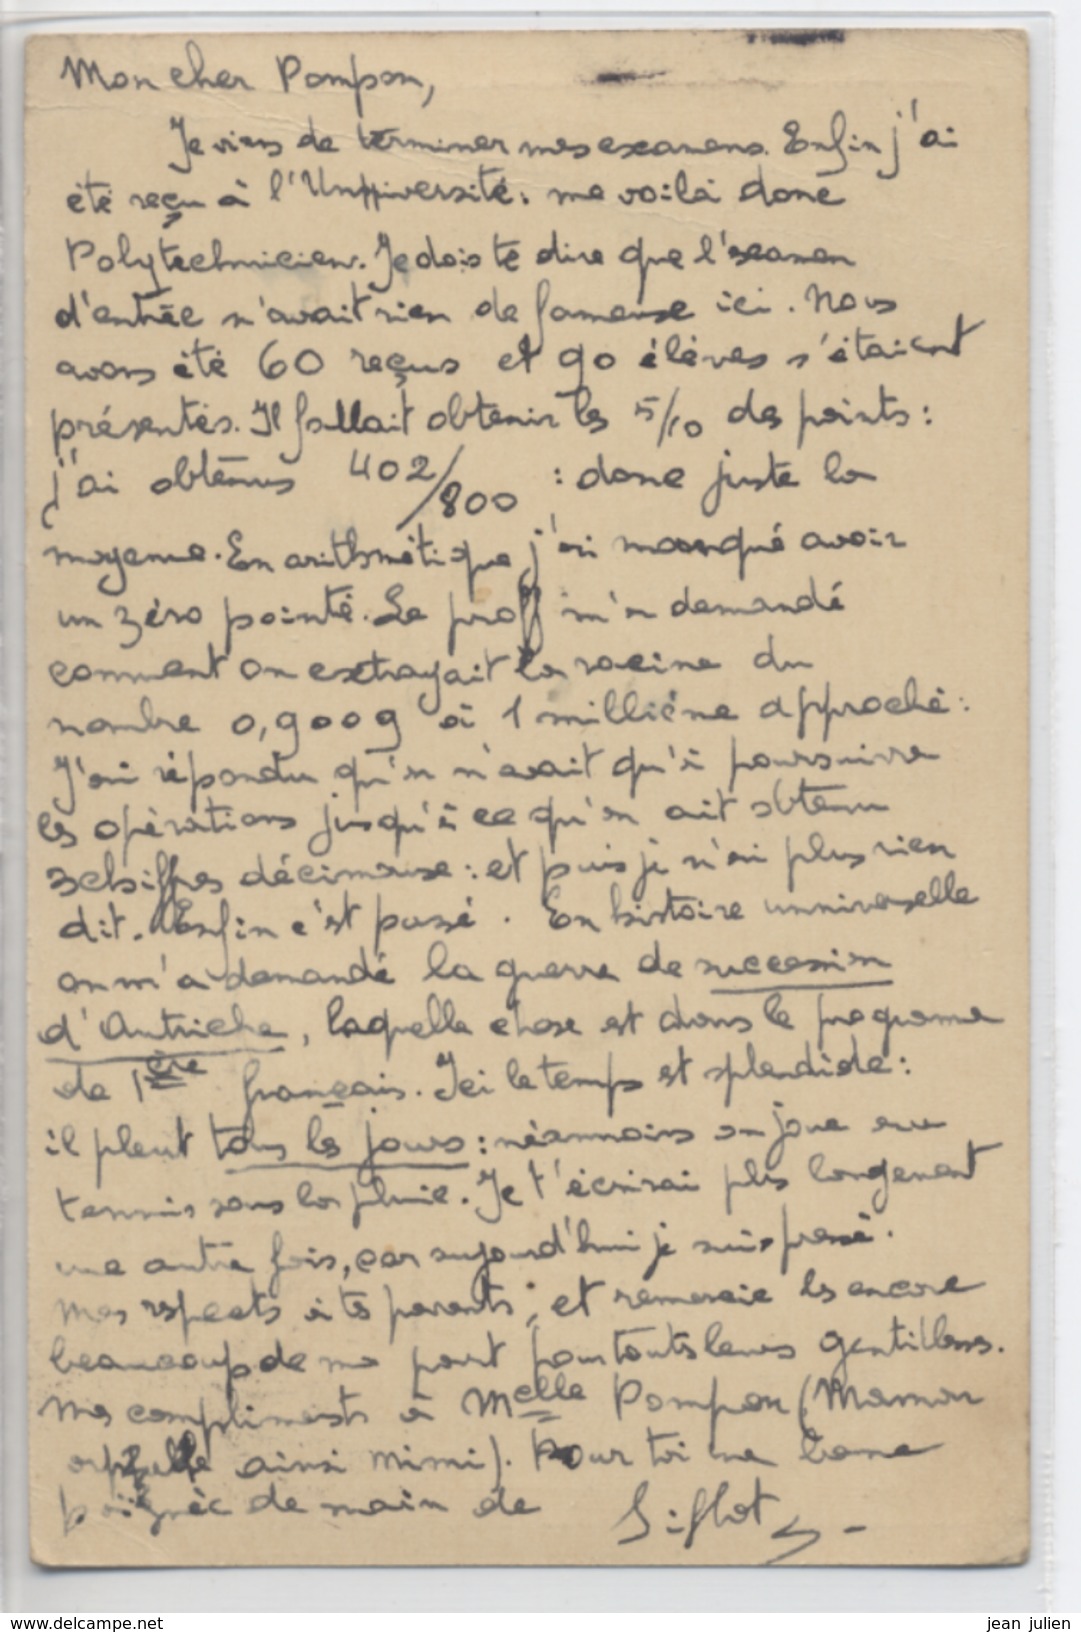 Mon cher Pompon,
Je viens de terminer mes examens. Enfin j'ai
été reçu à l'Université : me voilà donc
Polytechnicien. Je dois te dire que l'examen
d'entrée n'avait rien de fameuse ici. Nous
avons été 60 reçus et 90 élèves s'étaient
présentés. Il fallait obtenir les 5/10 des points :
j'ai obtenus 402/800 : donc juste la
moyenne. En arithmétique j'ai manqué avoir
un zéro pointé. Le prof m'a demandé
comment on extrayait la racine du
nombre 0,9009 à 1 millième approché :
J'ai répondu qu'on n'avait qu'à poursuivre
les opérations jusqu'à ce qu'on ait obtenu
3 chiffres décimause : et puis je n'ai plus rien
dit. Enfin c'est passé. En histoire unniverselle
on m'a demandé la guerre de succession
d'Autriche, laquelle chose est dans le programe
de 1ère français. Ici le temps est splendide :
il pleut tous les jours : néanmoins on joue au
tennis sous la pluie. Je t'écrirai plus longement
une autre fois, car aujourd'hui je suis pressé.
Mes respects à tes parents ; et remercie les encore
beaucoup de ma part pour touts leurs gentilless.
Mes compliments à Melle Pompon (Maman
appelle ainsi Mimi). Pour toi une bonne
poignée de main de Siflot
www.delcampe.net
jean julien